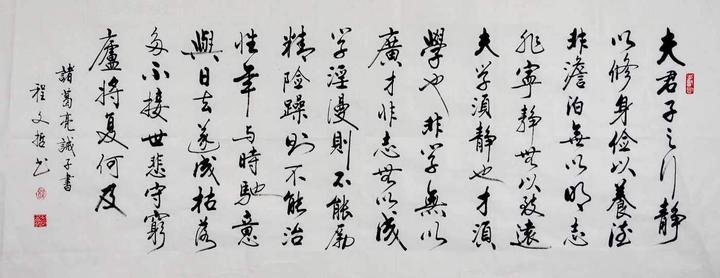 夫君子之行靜
以修身俭以養德
非澹泊無以明志
非寧靜無以致遠
夫学須靜也才須
學也非学無以
廣才非志無以成
学淫漫則不能勵
精险躁则不能治
性年与時馳意
與日去遂成枯落
多不接世悲守窮
廬將复何及
諸葛亮誡子書
程文哲书